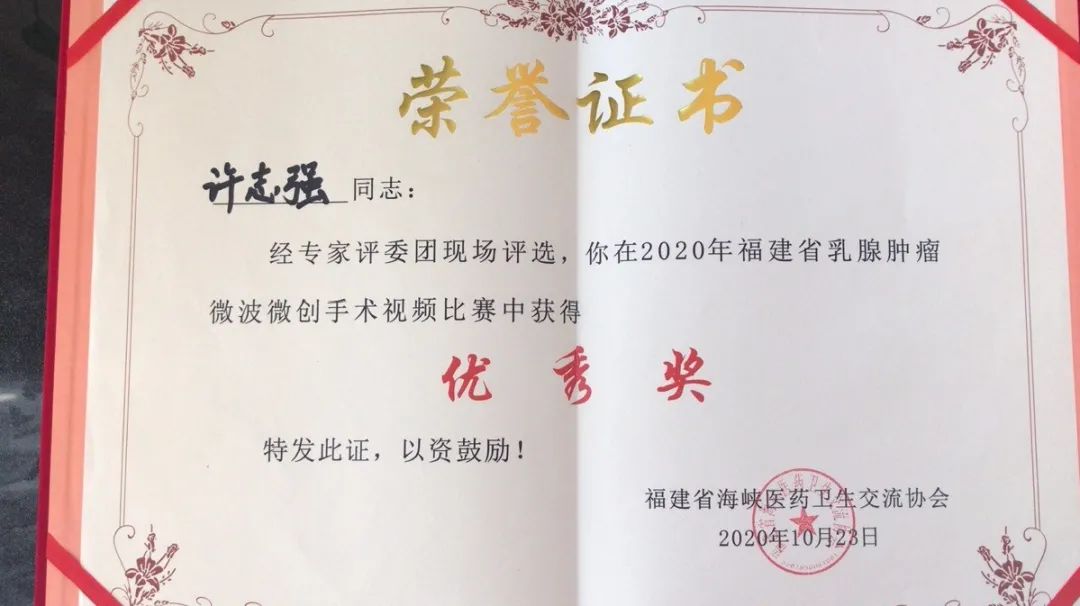 荣誉证书
许志强 同志：
经专家评委团现场评选，你在2020年福建省乳腺肿瘤
微波微创手术视频比赛中获得
优秀奖
特发此证，以资鼓励！
福建省海峡医药卫生交流协会
2020年10月23日